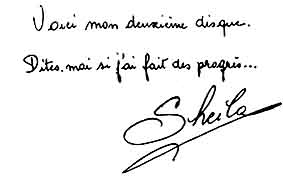 Voici mon deuxième disque.
Dites.moi si j'ai fait des progrès...
Sheila